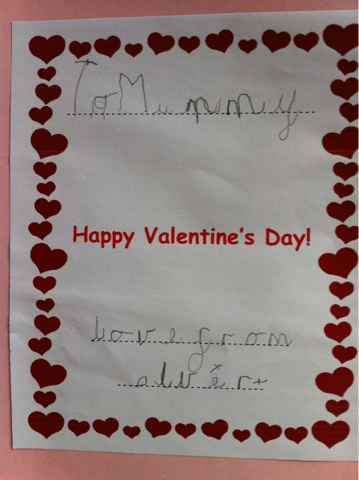 To Mummy
Happy Valentine's Day!
love from